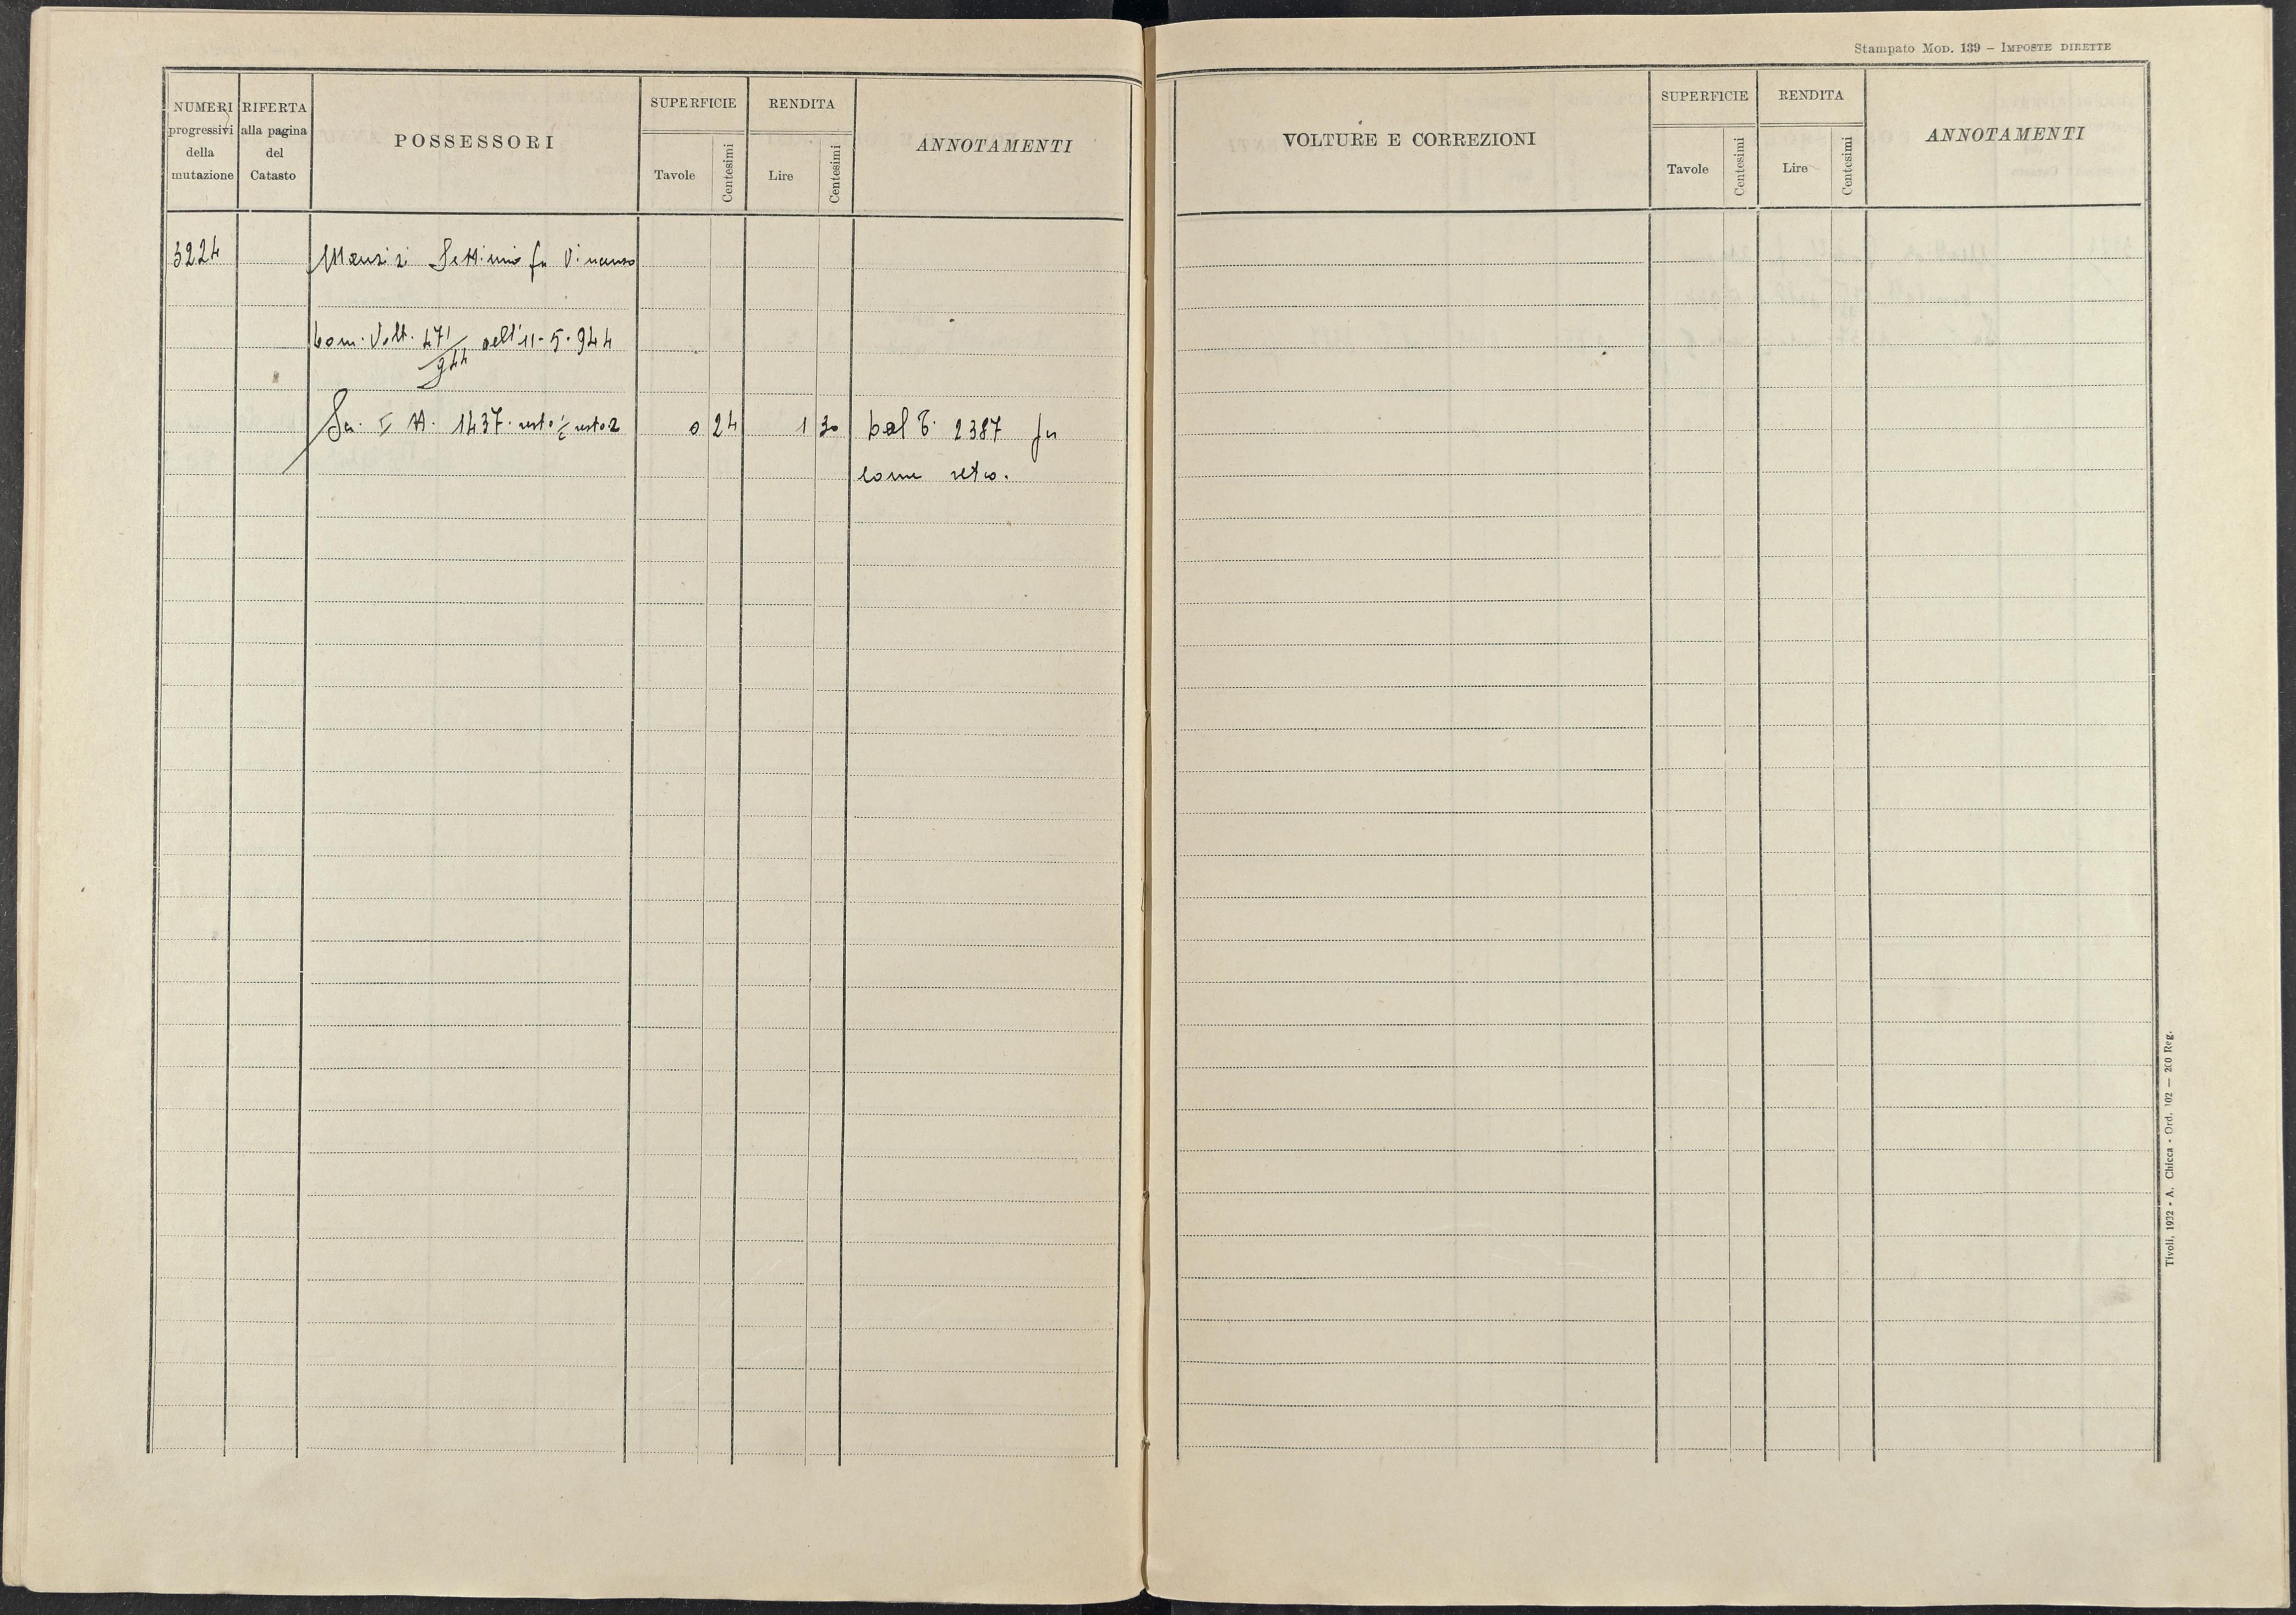 Stampato MOD. 139 – IMPOSTE DIRETTE
NUMERI progressivi della mutazione
RIFERTA alla pagina del Catasto
POSSESSORI
SUPERFICIE
Tavole
Centesimi
RENDITA
Lire
Centesimi
ANNOTAMENTI
3224
Settimio fu Vincenzo
Com. Volt. 471/944 dell' 11-5-944
1437 resto
0 24
1 30
Dal T. 2387 fu
come retro.
VOLTURE E CORREZIONI
SUPERFICIE
Tavole
Centesimi
RENDITA
Lire
Centesimi
ANNOTAMENTI
Tivoli, 1932 - A. Chicca - Ord. 102 — 200 Reg.